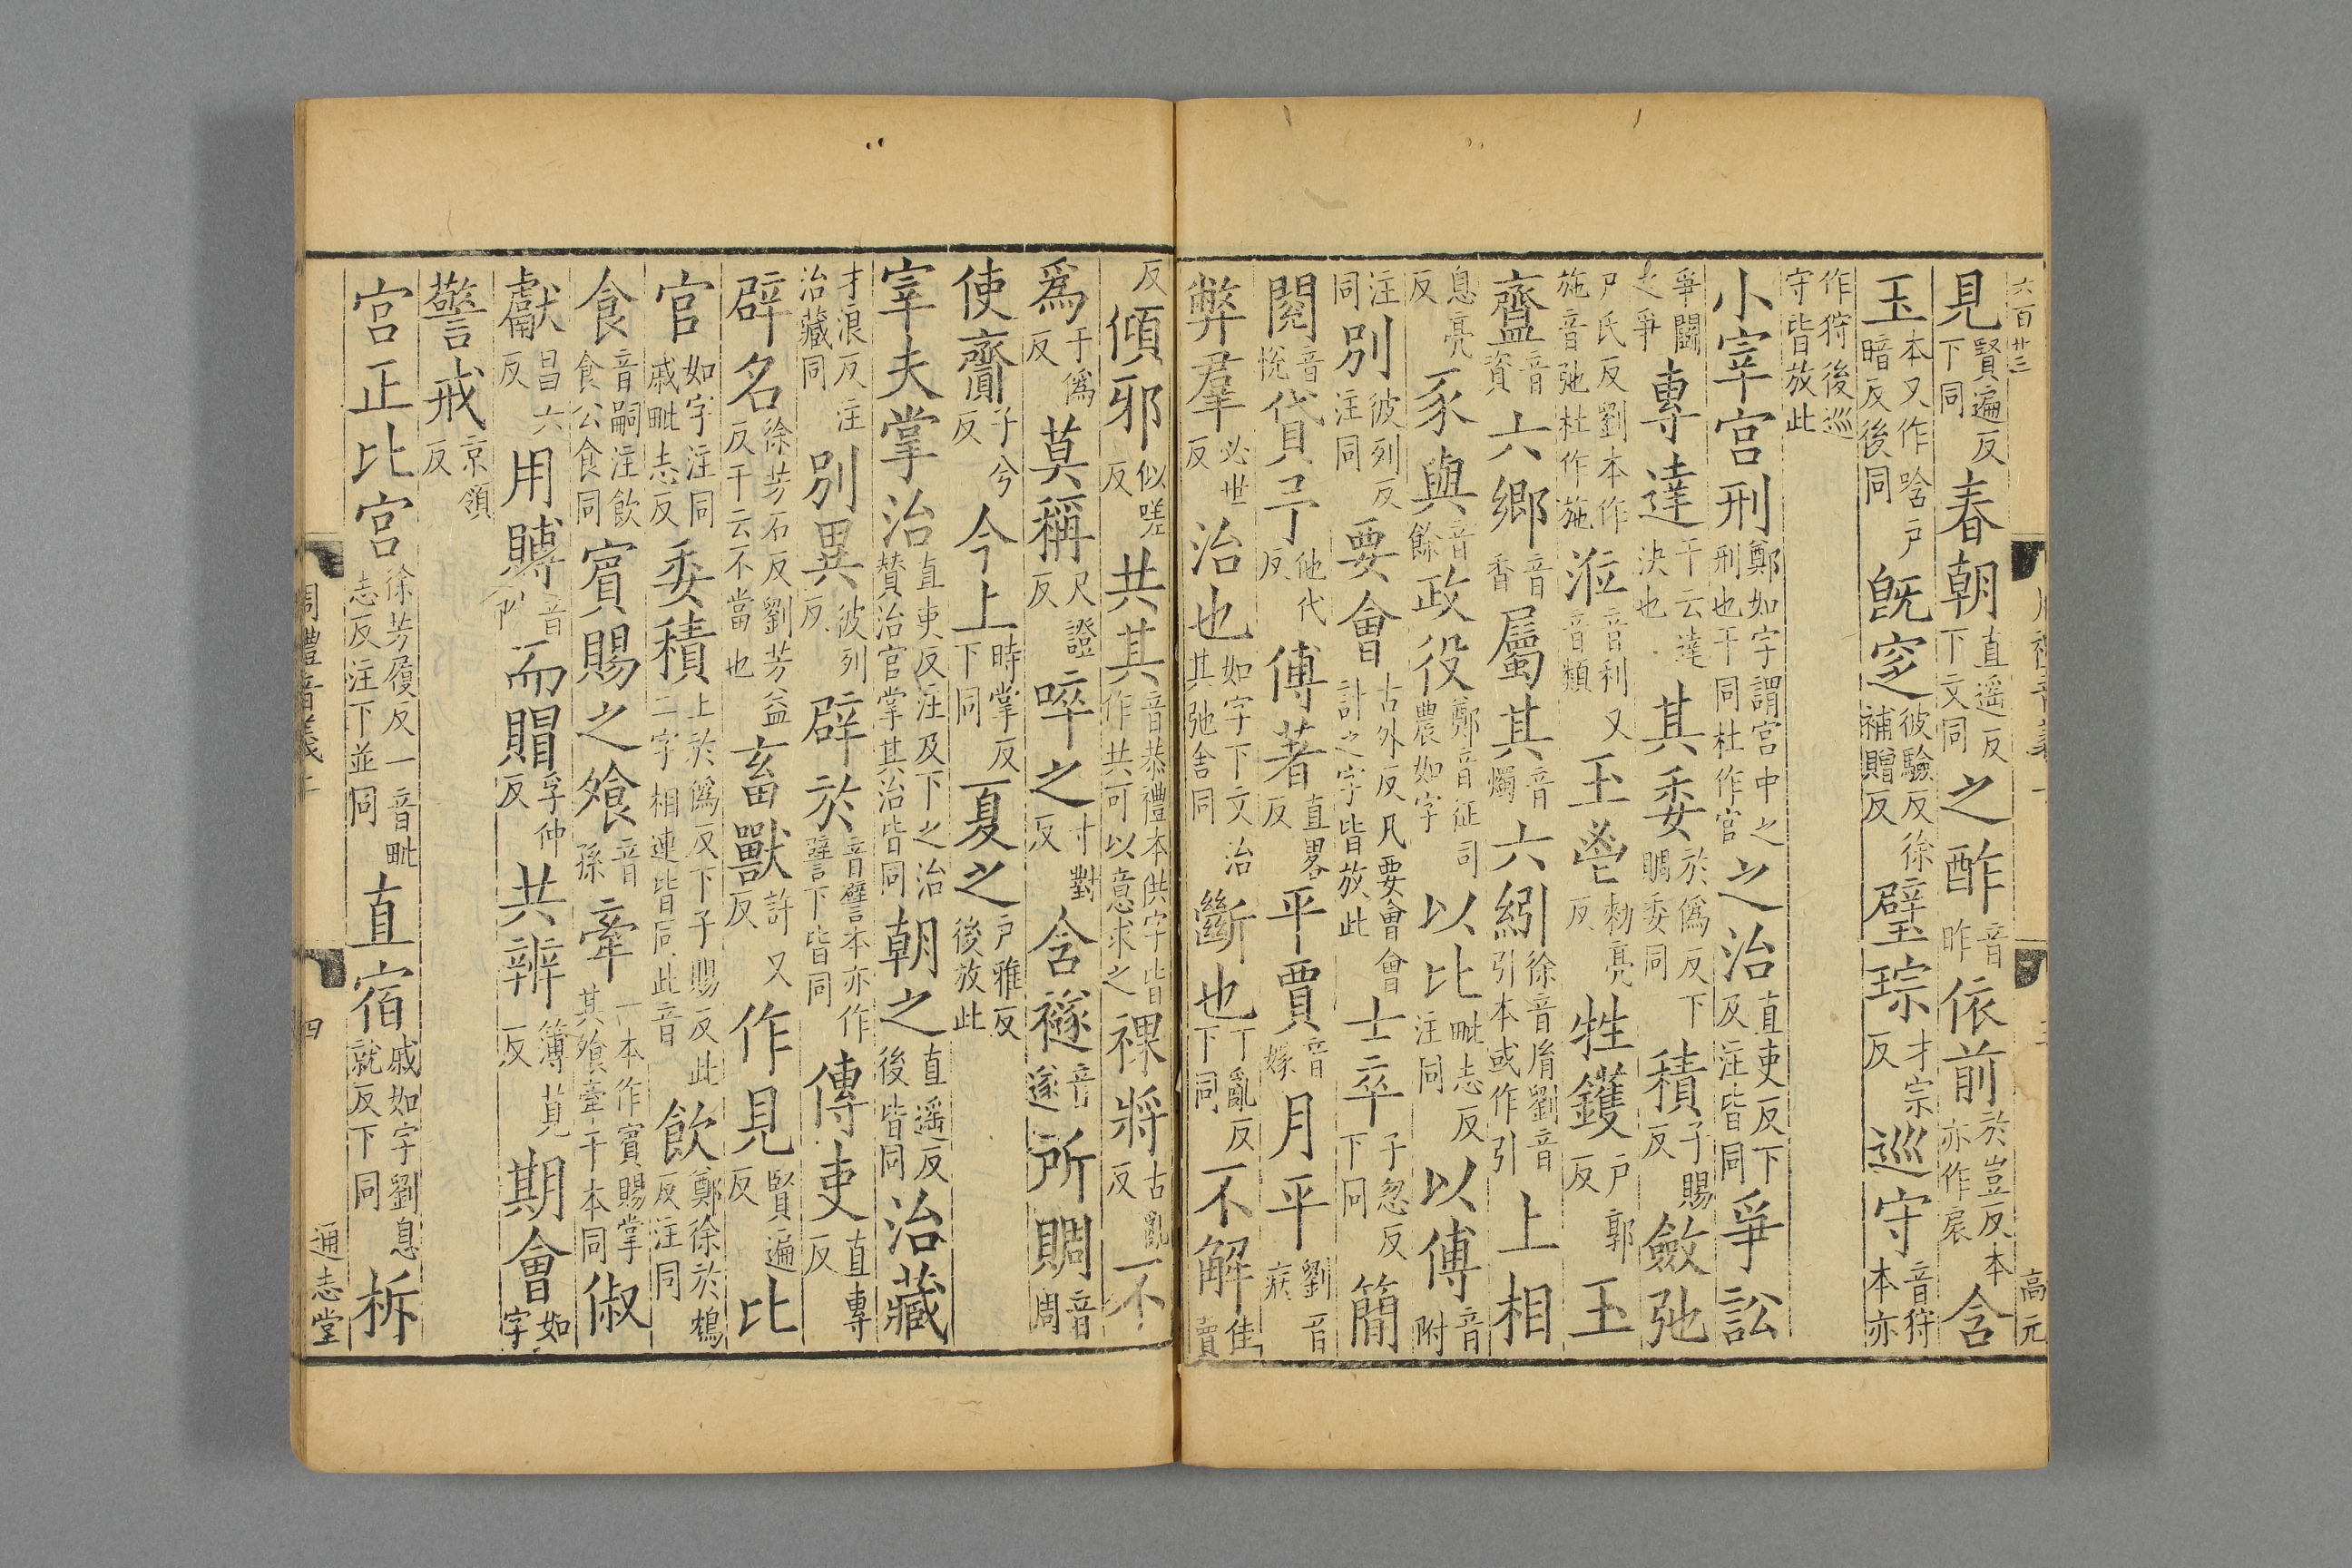 六百卄三 三 高元
見賢遍反下同春朝直遥反下文同之酢音昨依前於豈反本亦作扆含
玉本又作唅户暗反後同既窆彼驗反徐補贈反璧琮才宗反巡守音狩本亦
作狩後巡守皆放此
小宰宫刑鄭如字謂宫中之刑也干同杜作官之治直吏反下及注皆同爭訟
爭鬬之爭專達干云達決也其委於僞反下賙委同積子賜反斂弛
尸氏反劉本作施音弛杜作施涖音利又音類玉鬯勑亮反牲鑊户郭反玉
齍音資六鄉音香屬其音燭六紖徐音胤劉音引本或作引上相
息亮反豕與音餘政役鄭音征司農如字以比毗志反注同以傅音附
注同別彼列反注同要會古外反凡要會會計之字皆放此士卒子忽反下同簡
閱音悦貸予他代反傅著直畧反平賈音嫁月平劉音病
弊羣必世反治也如字下文治其弛舍同斷也丁亂反下同不解佳賣
反傾邪似嗟反共其音恭禮本供字皆作共可以意求之祼將古亂反不
爲于僞反莫稱尺證反啐之寸對反含襚音遂所賙音周
使齎子兮反今上時掌反下同夏之户雅反後放此
宰夫掌治直吏反注及下之治贊治官掌其治皆同朝之直遥反後皆同治藏
才浪反注治藏同別異彼列反辟於音譬本亦作譬下皆同傳吏直專反
辟名徐芳石反劉芳益反干云不當也畜獸許又反作見賢遍反比
官如字注同戚毗志反委積上於僞反下子賜反此二字相連皆同此音飲鄭徐於鴆反注同
食音嗣注飲食公食同賓賜之飧音孫牽一本作賓賜掌其飧牽干本同俶
獻昌六反用賻音附而賵孚仲反共辨薄莧反期會如字
警戒京領反
宫正比宫徐芳履反一音毗志反注下並同直宿戚如字劉息就反下同柝
周禮音義上 四 通志堂